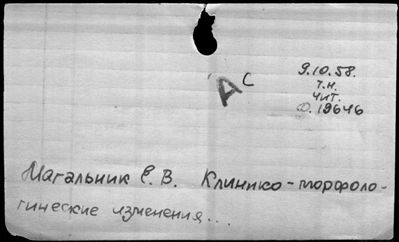 Ас
9.10.58.
т.н.
чит.
Ф. 19646
Магальник Е. В. Клинико-морфоло-
гические изменения...